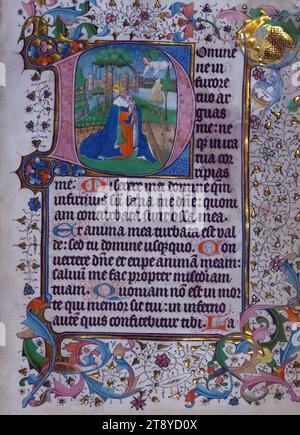 Domine
ne in
furore
tuo ar
guas
me: ne
q in ira
tua cor
ripias
me: Miserere mei domine qm
infirmus sum sana me dne: quoni
am conturbata sunt ossa mea.
Et anima mea turbata est val
de: sed tu domine usquequo. Con
vertere dne et eripe animam meam:
salvum me fac propter misericordiam
tuam. Quoniam non est in mor
te qui memor sit tui: in inferno
autem quis confitebitur tibi. La
alamy
Image ID: 2T8YD0X
www.alamy.com